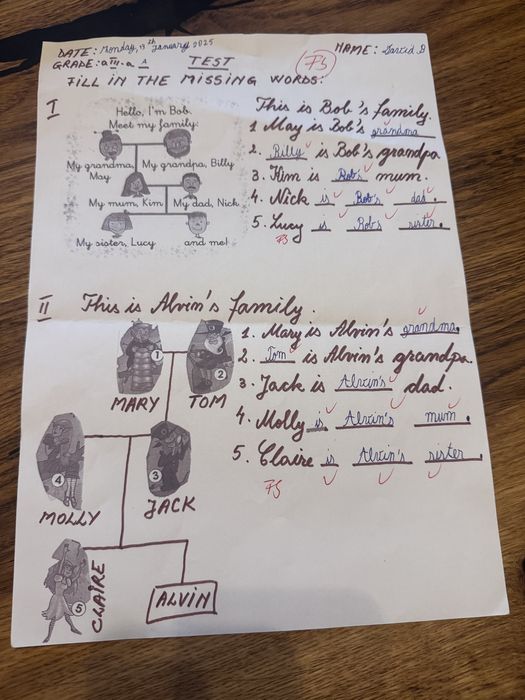 DATE: Monday, 13th January 2025
NAME: David B
GRADE: a III.a A
TEST
FB
FILL IN THE MISSING WORDS:
I
Hello, I'm Bob.
Meet my family:
My grandma, May
My grandpa, Billy
My mum, Kim
My dad, Nick
My sister, Lucy
and me!
This is Bob's family.
1 May is Bob's grandma
2. Billy is Bob's grandpa
3. Kim is Bob's mum.
4. Nick is Bob's dad.
5. Lucy is Bob's sister.
FB
II This is Alvin's family.
1
2
MARY TOM
4
3
MOLLY JACK
5
CLAIRE
ALVIN
1. Mary is Alvin's grandma.
2. Tom is Alvin's grandpa.
3. Jack is Alvin's dad.
4. Molly is Alvin's mum.
5. Claire is Alvin's sister.
FB